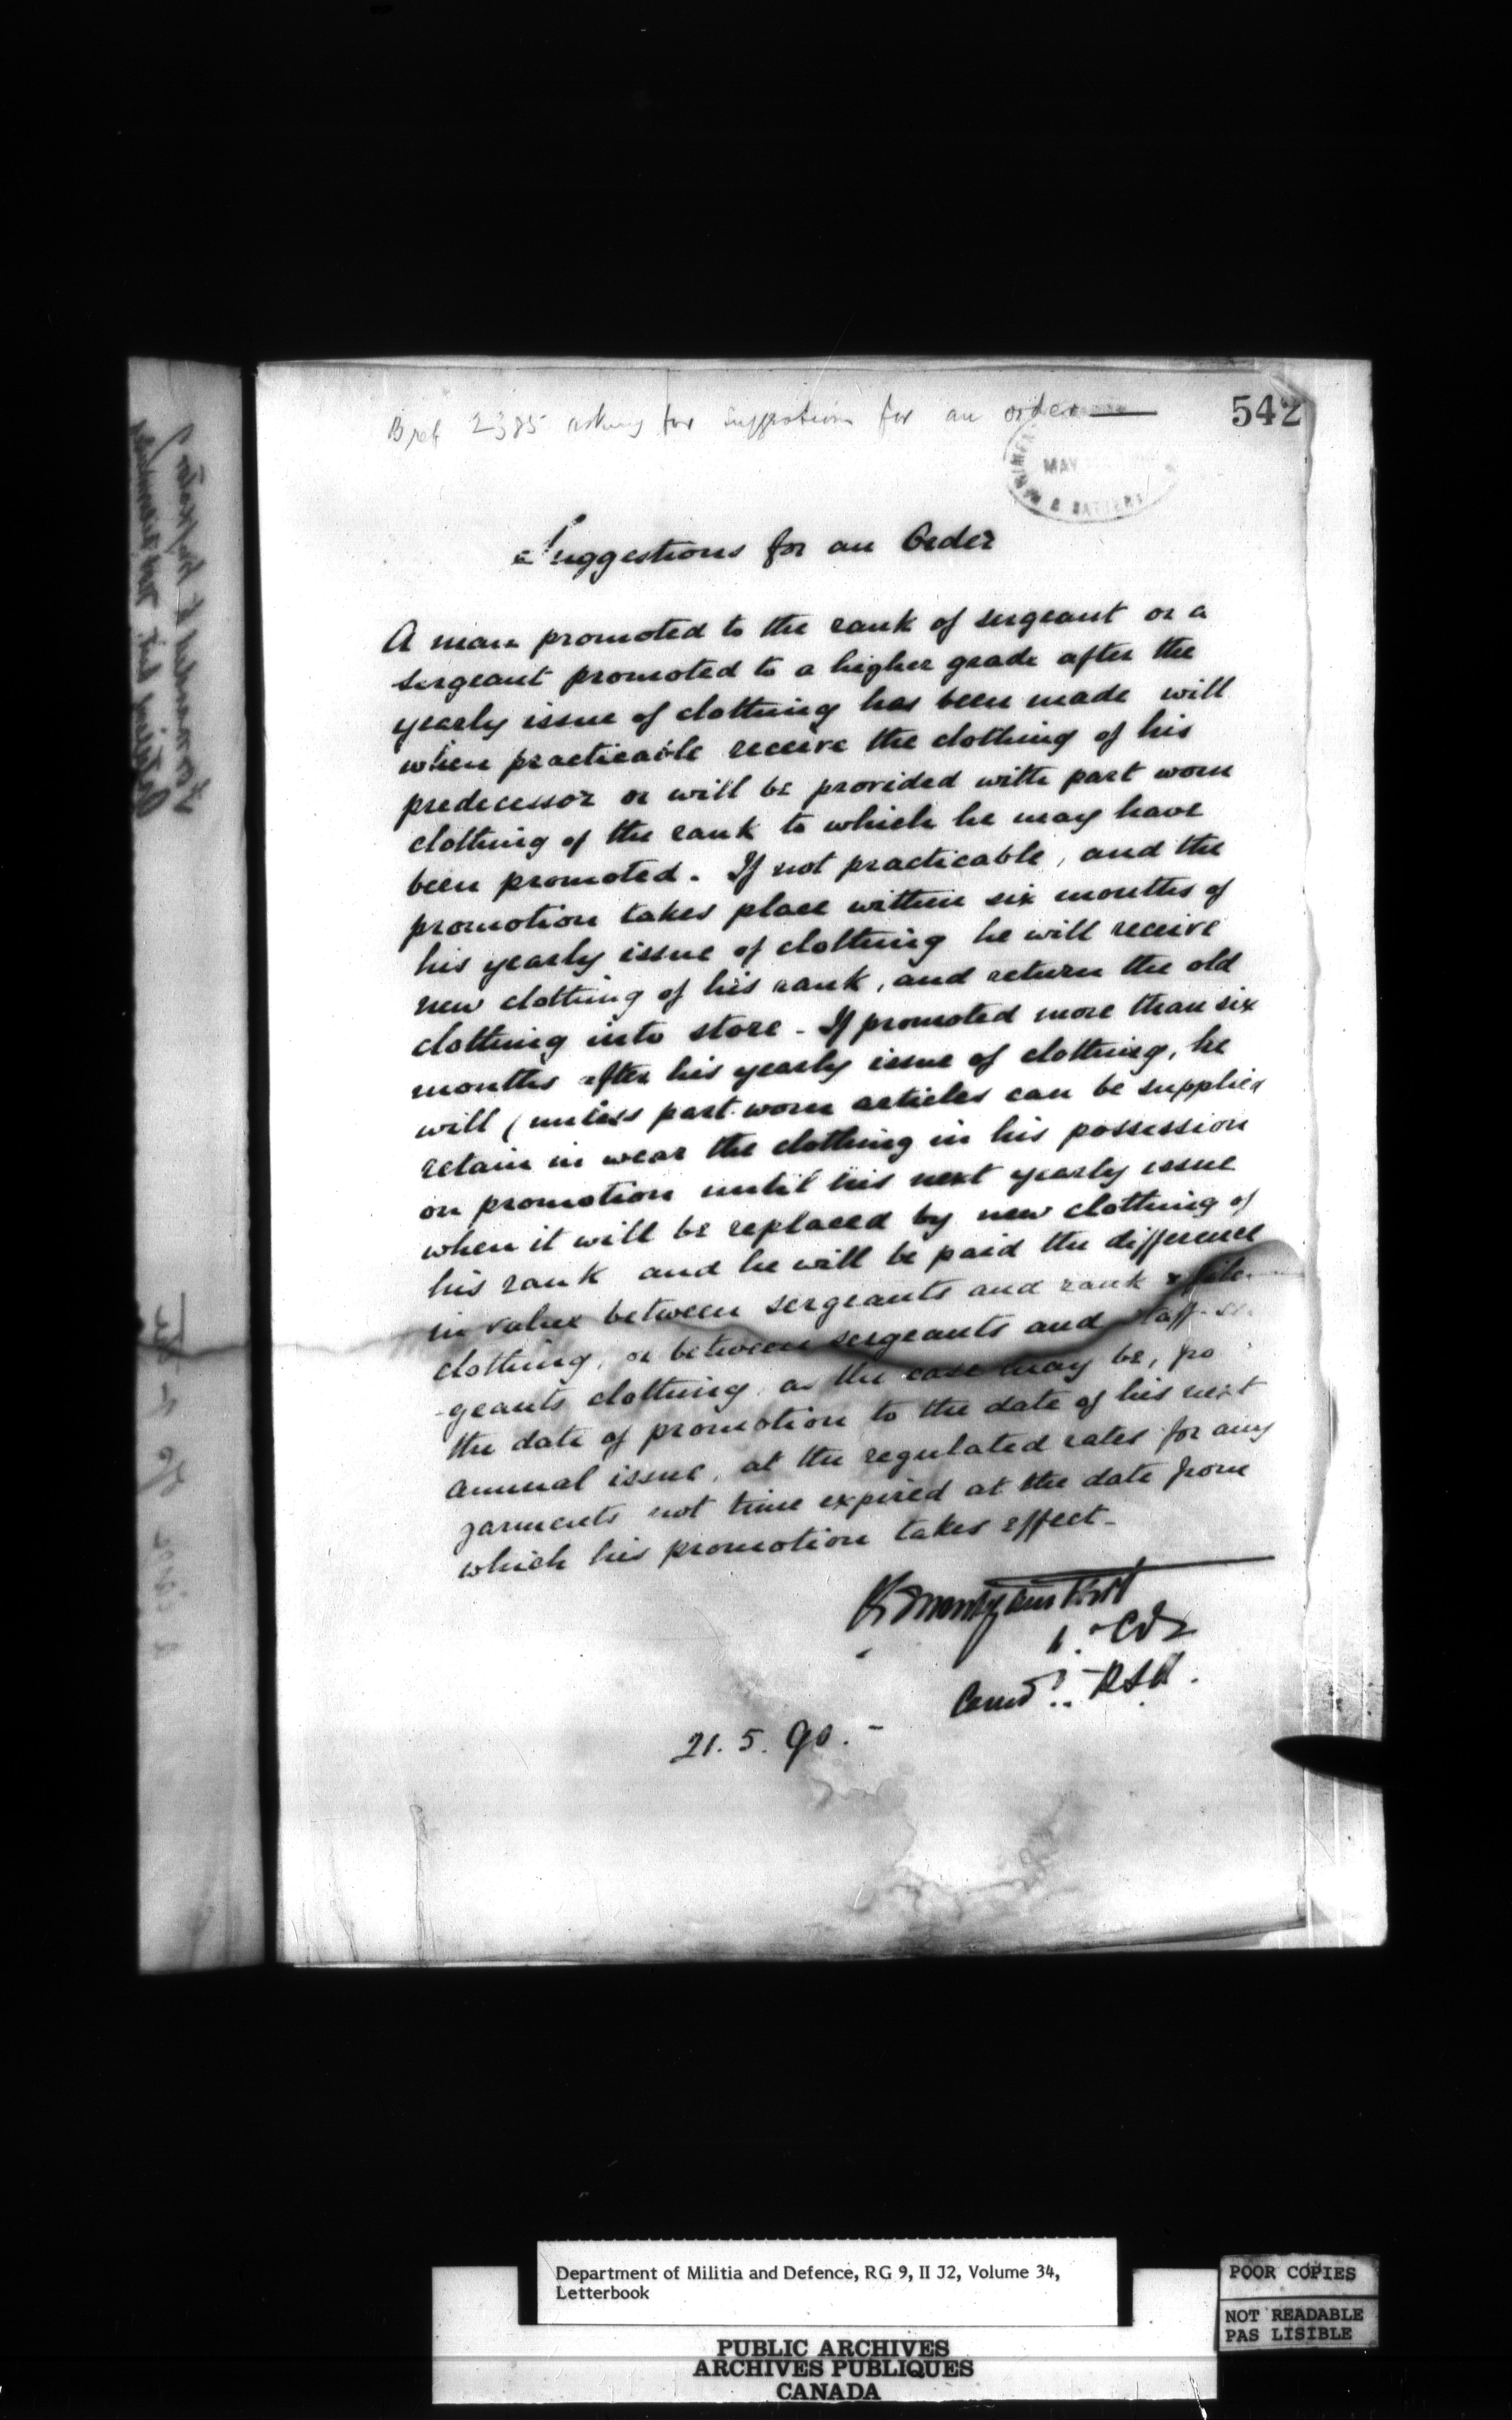 542
B ref 2385 asking for suggestions for an order
MAY
B BATTERY
Suggestions for an Order
A man promoted to the rank of sergeant or a
sergeant promoted to a higher grade after the
yearly issue of clothing has been made will
when practicable receive the clothing of his
predecessor or will be provided with part worn
clothing of the rank to which he may have
been promoted. If not practicable, and the
promotion takes place within six months of
his yearly issue of clothing he will receive
new clothing of his rank, and return the old
clothing into store - If promoted more than six
months after his yearly issue of clothing, he
will (unless part worn articles can be supplied
retain in wear the clothing in his possession
on promotion until his next yearly issue
when it will be replaced by new clothing of
his rank and he will be paid the difference
in value between sergeants and rank & file
clothing, or between sergeants and staff ser
-geants clothing as the case may be, fro
the date of promotion to the date of his next
annual issue, at the regulated rates for any
garments not time expired at the date from
which his promotion takes effect -
Comdt. RSA.
21. 5. 90. -
Department of Militia and Defence, RG 9, II J2, Volume 34,
Letterbook
POOR COPIES
NOT READABLE
PAS LISIBLE
PUBLIC ARCHIVES
ARCHIVES PUBLIQUES
CANADA